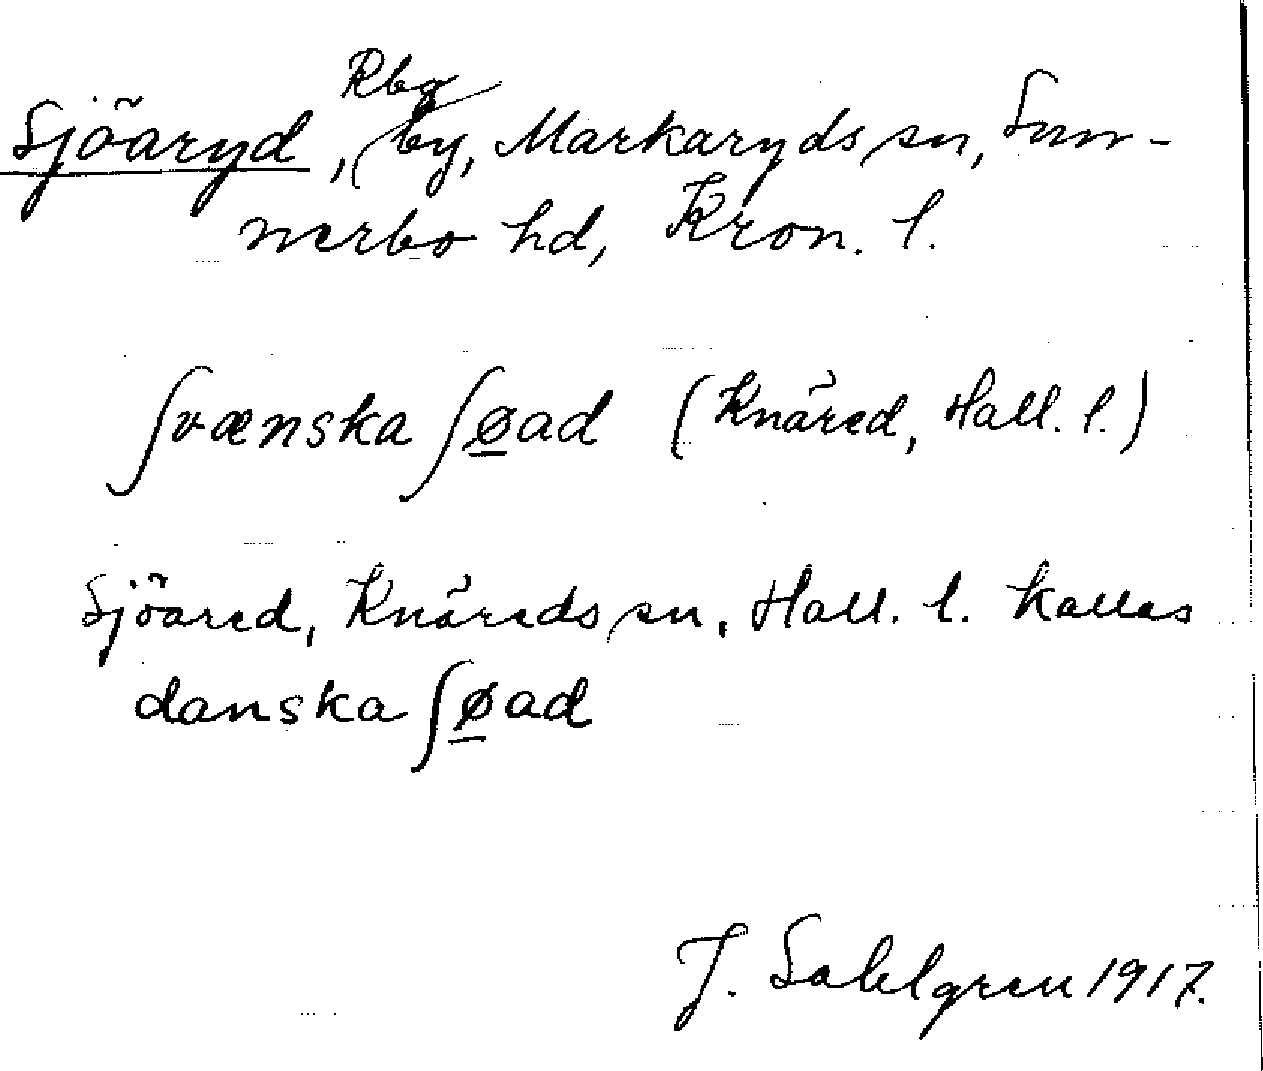 Sjöaryd, Rbg by, Markaryds sn, Sun-
nerbo hd, Kron. l.
ʃvænska ʃø̲ad (Knäred, Hall. l.)
Sjöared, Knäreds sn, Hall. l. kallas
danska ʃø̲ad
J. Sahlgren 1917.